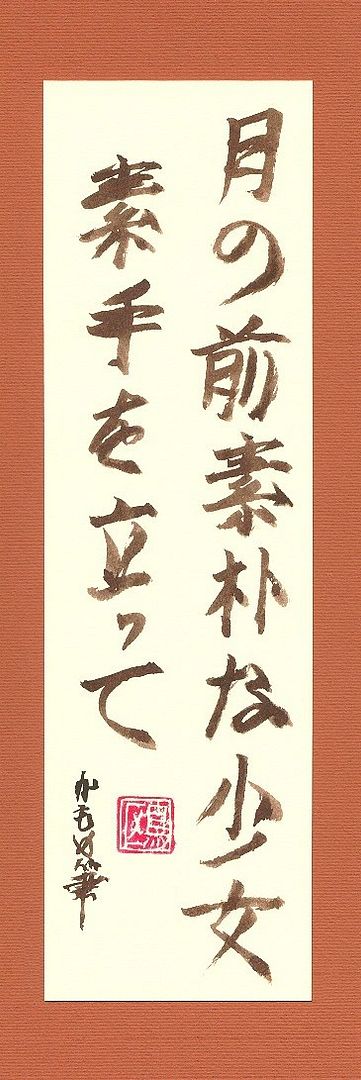 月の前素朴な少女
素手を立って
かもめ筆